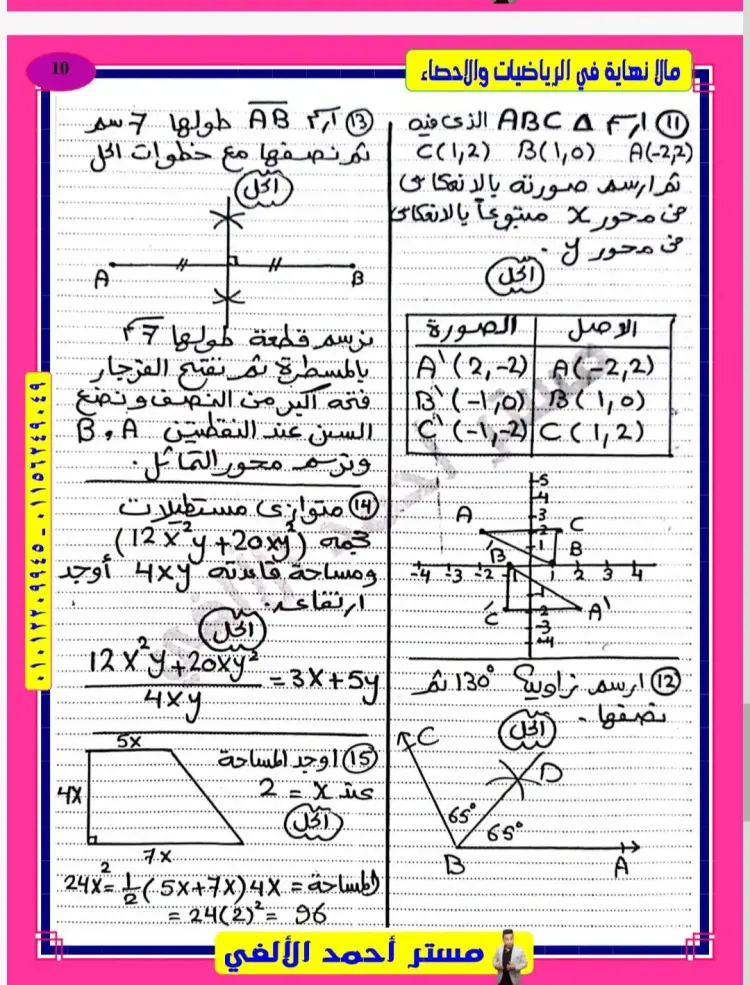 10
مالا نهاية في الرياضيات والاحصاء
(11) ارسم Δ ABC الذى فيه
A(-2,2) B(1,0) C(1,2)
ثم ارسم صورته بالانعكاس
فى محور x متبوعاً بالانعكاس
فى محور y .
الحل
الاصل الصورة
A(-2,2) A'(2,-2)
B(1,0) B'(-1,0)
C(1,2) C'(-1,-2)
5
4
A 3 C
2
B' 1 B
-4 -3 -2 -1 1 2 3 4
1
C' 2 A'
-3
-4
(12) ارسم زاوية 130° ثم
نصفها .
الحل
C D
65°
65°
B A
(13) ارسم AB طولها 7 سم
ثم نصفها مع خطوات الحل
الحل
A B
نرسم قطعة طولها 7 سم
بالمسطرة ثم نفتح الفرجار
فتحه أكبر من النصف ونضع
السن عند النقطتين A , B
ونرسم محور التماثل .
(14) متوازى مستطيلات
حجمه (12x²y+20xy²)
ومساحة قاعدته 4xy أوجد
ارتفاعه .
الحل
12x²y+20xy²
4xy
= 3x+5y
(15) اوجد المساحة
عند x = 2
الحل
5x
4x
7x
المساحة = ½(5x+7x)4x = 24x²
= 24(2)² = 96
مستر أحمد الألفي
٠١٠١٢٢٠٩٩٤٥ - ٠١١٥٦٢٤٩٠٤٩
مستر أحمد الألفي